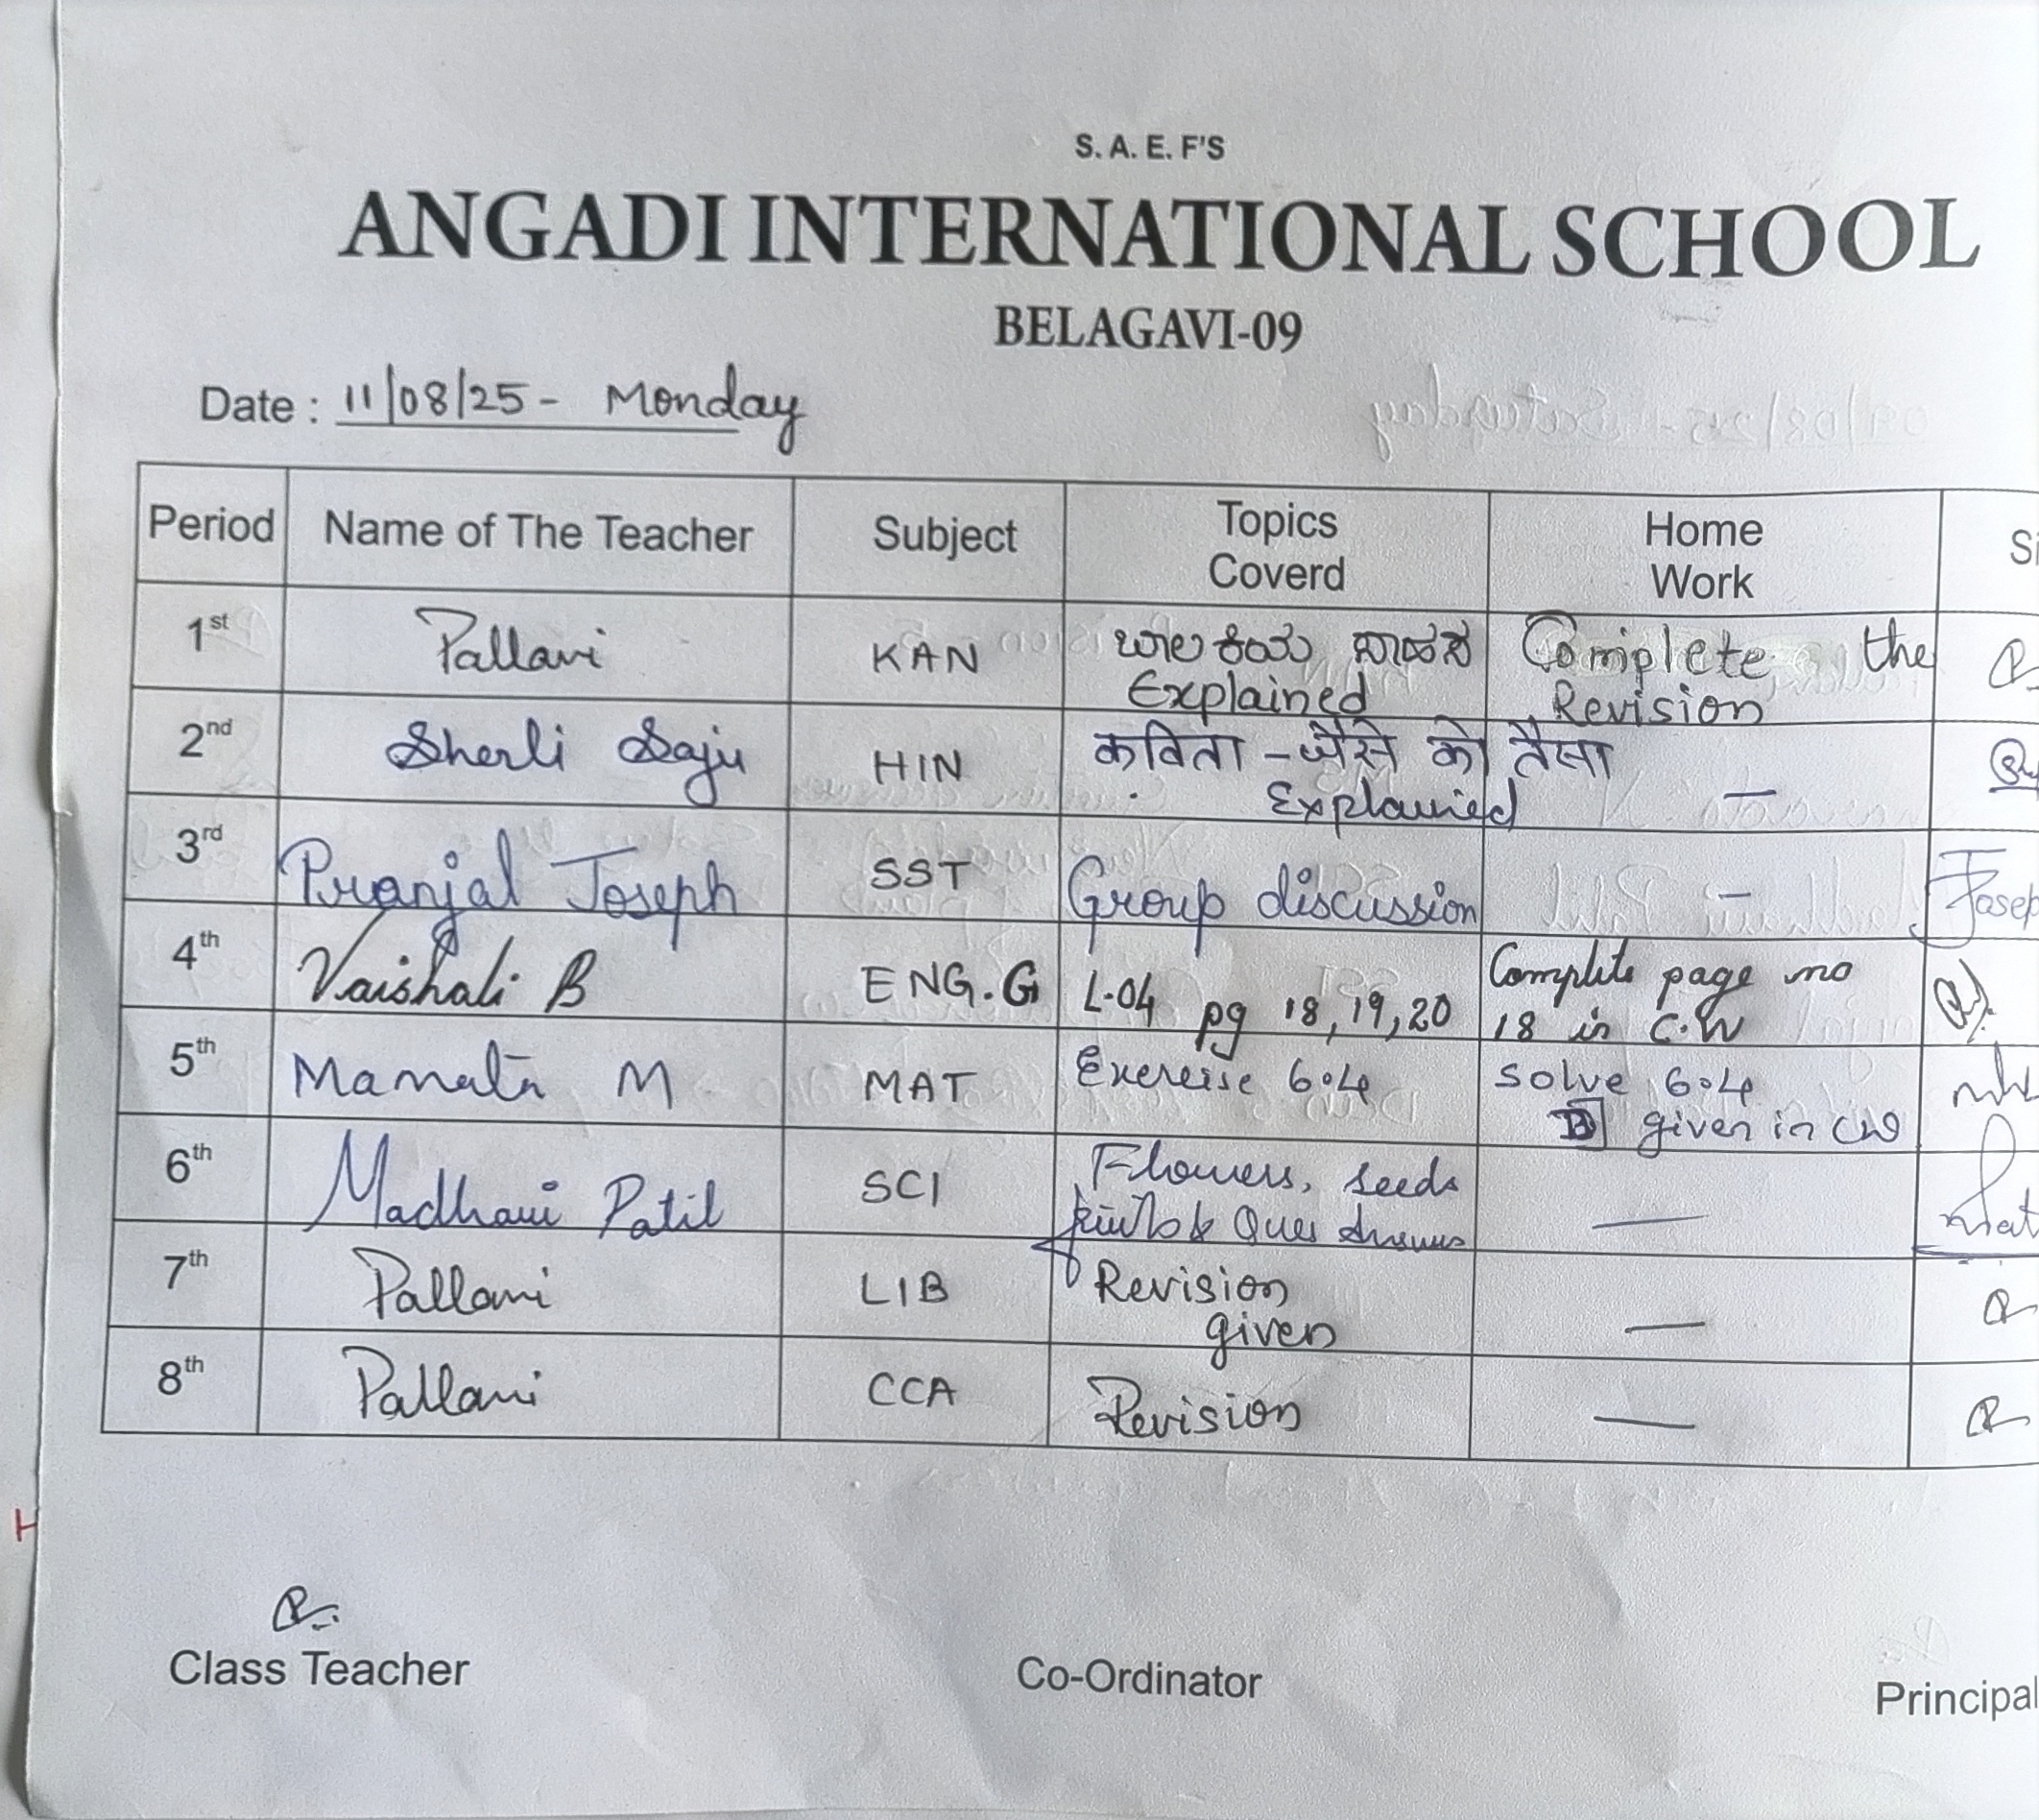 S. A. E. F'S
ANGADI INTERNATIONAL SCHOOL
BELAGAVI-09
Date : 11/08/25 - Monday
Period Name of The Teacher Subject Topics Coverd Home Work
1st Pallavi KAN Explained Complete the Revision
2nd Sherli Saju HIN कविता - जैसे को तैसा Explained —
3rd Pranjal Joseph SST Group discussion —
4th Vaishali B ENG.G L.04 pg 18, 19, 20 Complete page no 18 in C.W
5th Mamata M MAT Exercise 6.4 Solve 6.4 B given in CW
6th Madhavi Patil SCI Flowers, seeds Ques —
7th Pallavi LIB Revision given —
8th Pallavi CCA Revision —
Class Teacher Co-Ordinator Principal